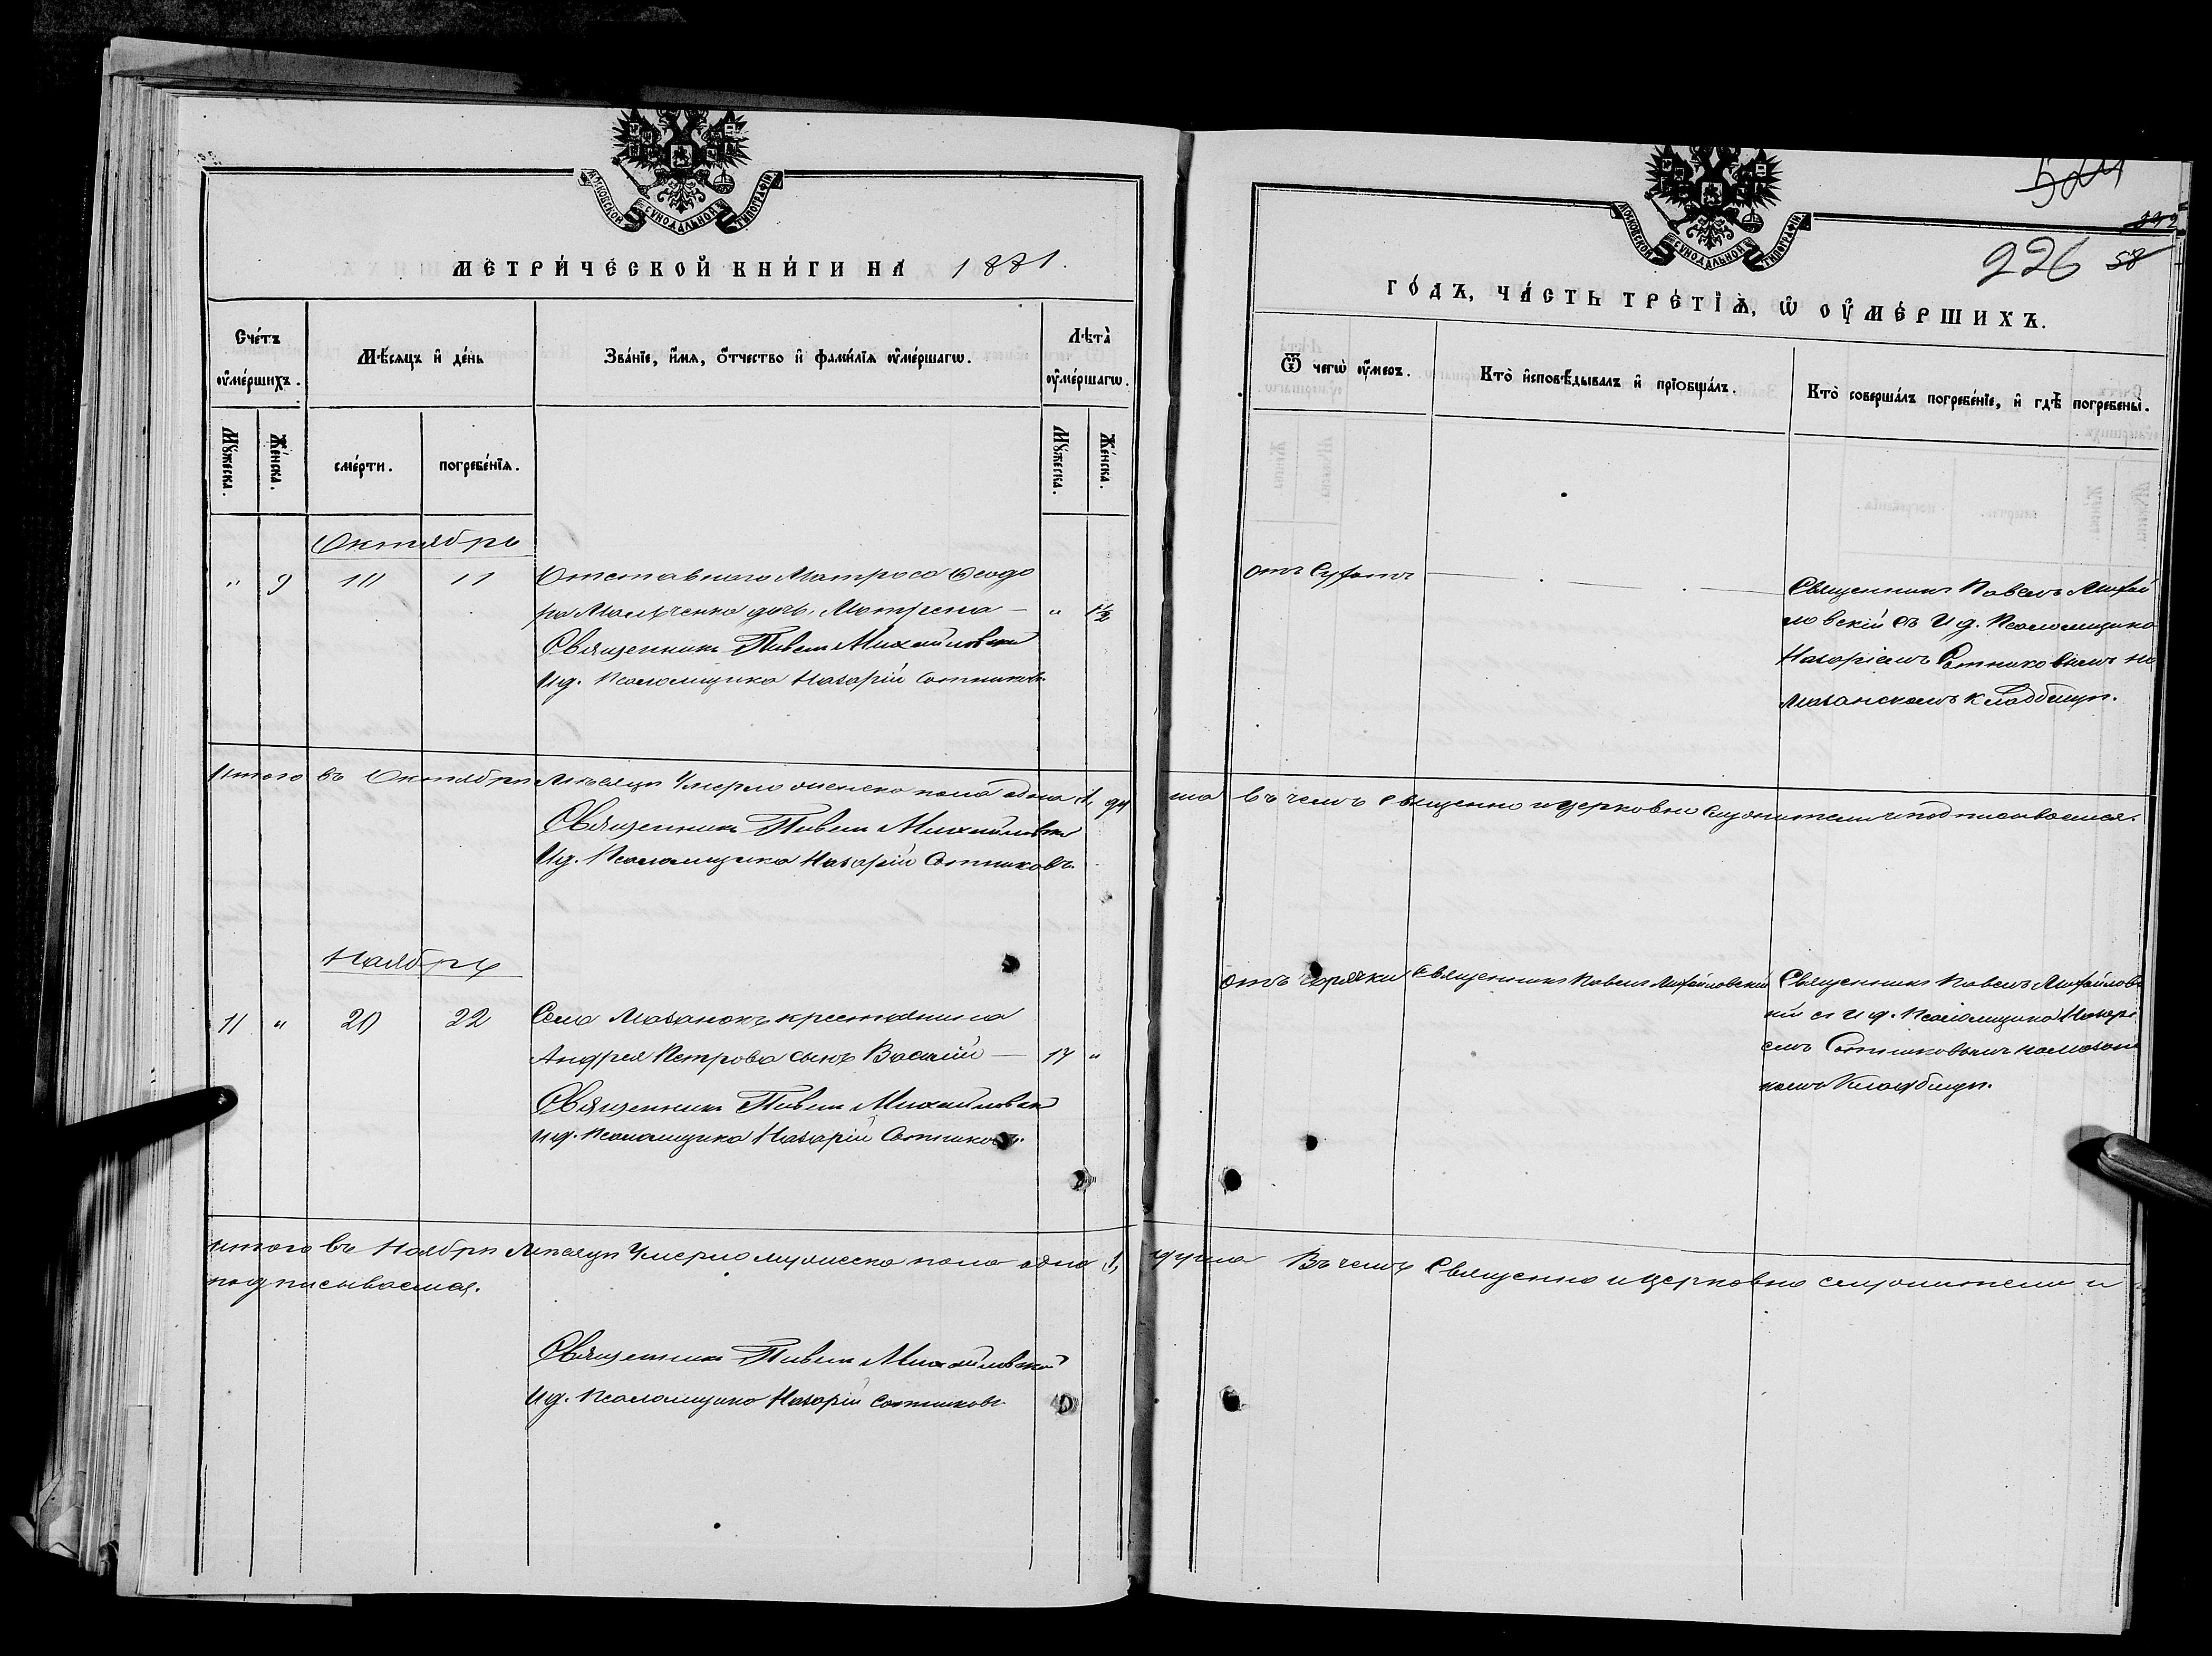 МОСКОВСКОЙ СѴНОДАЛЬНОЙ ТИПОГРАФІИ
МЕТРИ́ЧЕСКОЙ КНИ́ГИ НА 1881.
Сче́тъ оу҆ме́ршихъ.
Мѣ́сяцъ и҆ де́нь
Зва́нїе, и҆́мя, ѻ҆́тчество и҆ фами́лїя оу҆ме́ршагѡ.
Лѣта̀ оу҆ме́ршагѡ.
Мꙋ́жеска.
Же́нска.
сме́рти.
погребе́нїя.
Мꙋ́жеска.
Же́нска.
Октябрь
" 9 10 11 Отставнаго Матроса Ѳеодо
ра дочь Матрена — " 1/2
Священникъ Павелъ Михайловскій
И д. Псаломщика Назарій Сотниковъ.
Итого въ Октябрѣ Мѣсяцѣ Умерло женска пола одна 1, ду
Священникъ Павелъ Михайловскій
И д. Псаломщика Назарій Сотниковъ.
Ноябрь
11 " 20 22 Села Мазанокъ крестьянина
Андрея Петрова сынъ Василій — 17 "
Священникъ Павелъ Михайловскій
И д. Псаломщика Назарій Сотниковъ.
Итого въ Ноябрѣ Мѣсяцѣ Умерло мужеска пола одна 1,
подписываемся.
Священникъ Павелъ Михайловскій
И д. Псаломщика Назарій Сотниковъ.
МОСКОВСКОЙ СѴНОДАЛЬНОЙ ТИПОГРАФІИ
226 58
ГО́ДЪ, ЧА́СТЬ ТРЕ́ТЇѦ, Ѡ҆ ОУ҆МЕ́РШИХЪ.
Ѿ чегѡ̀ оу҆́меръ.
Кто̀ и҆сповѣ́дывалъ и҆ прїобща́лъ.
Кто̀ соверша́лъ погребе́нїе, и҆ гдѣ̀ погребены̀.
отъ Сухотъ — Священникъ Павелъ Михай
ловскій съ И д. Псаломщика
Назаріемъ Сотниковымъ на
Мазанскомъ Кладбищѣ.
ша въ чемъ Священно и церковно служители и подписываемся.
Отъ горячки Священникъ Павелъ Михайловскій Священникъ Павелъ Михайловс
кій съ И д. Псаломщика Назарі
емъ Сотниковымъ на Мазанс
комъ Кладбищѣ.
душа Въ чемъ Священно и Церковно служители и